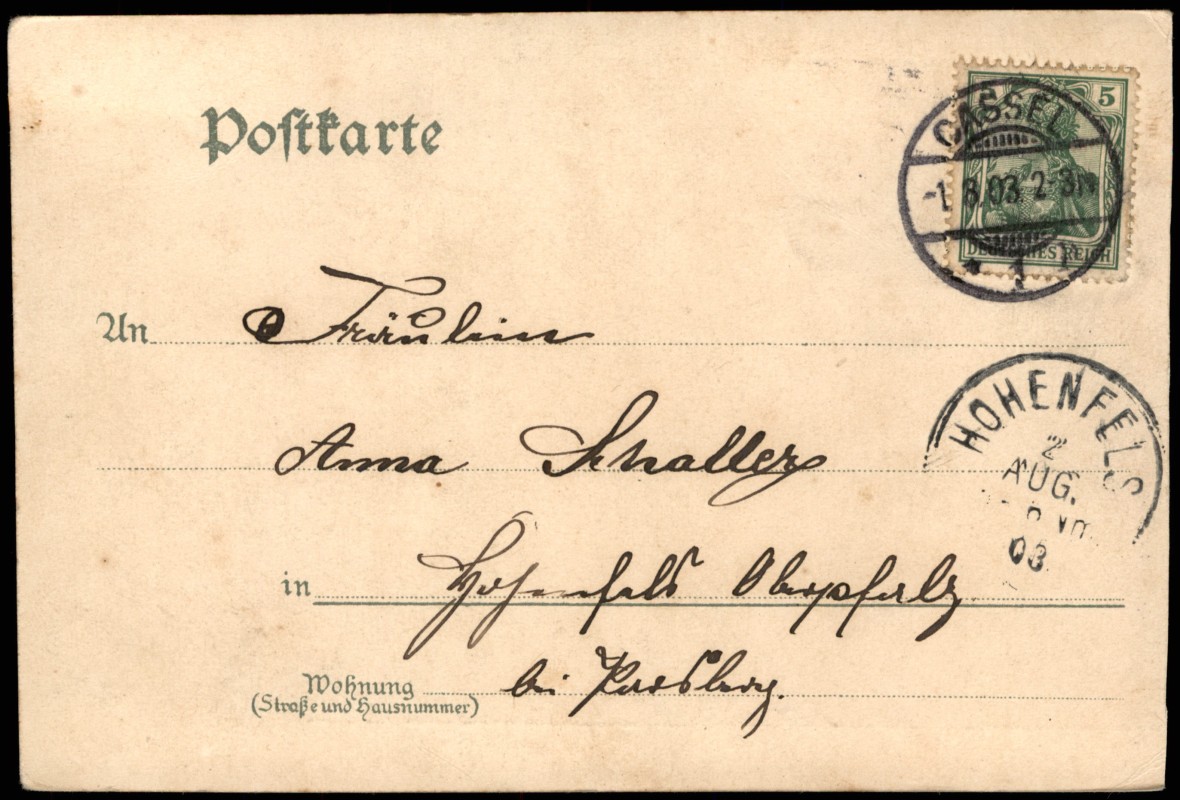 Postkarte
5
CASSEL
-1.8.03. 2-3N.
DEUTSCHES REICH
* 1
An Fräulein
HOHENFELS
2
AUG.
03
Anna Schaller
in Hohenfels Oberpfalz
bei Parsberg.
Wohnung
(Straße und Hausnummer)